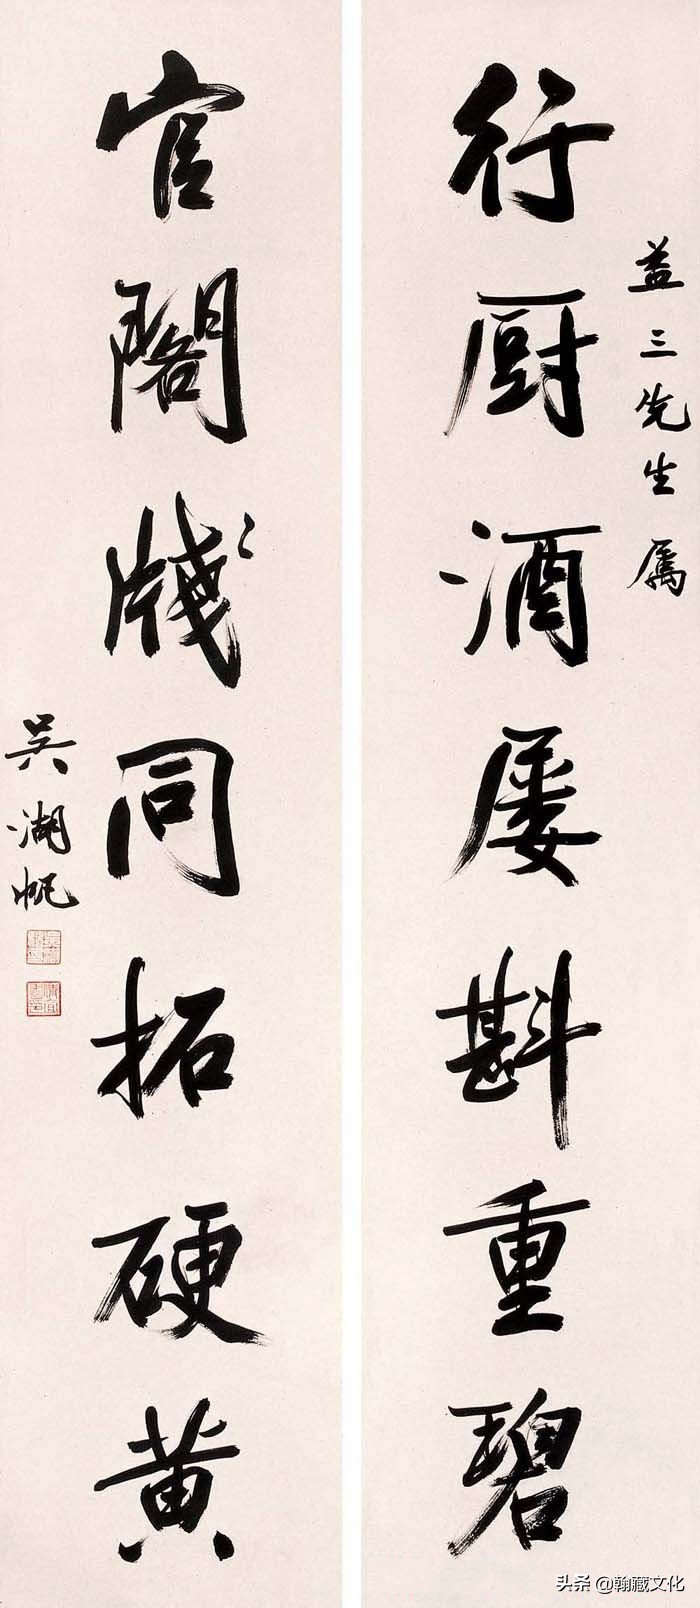 益三先生属
行厨酒屡斟重碧
官閣牋同拓硬黄
吴湖帆
头条 @翰藏文化